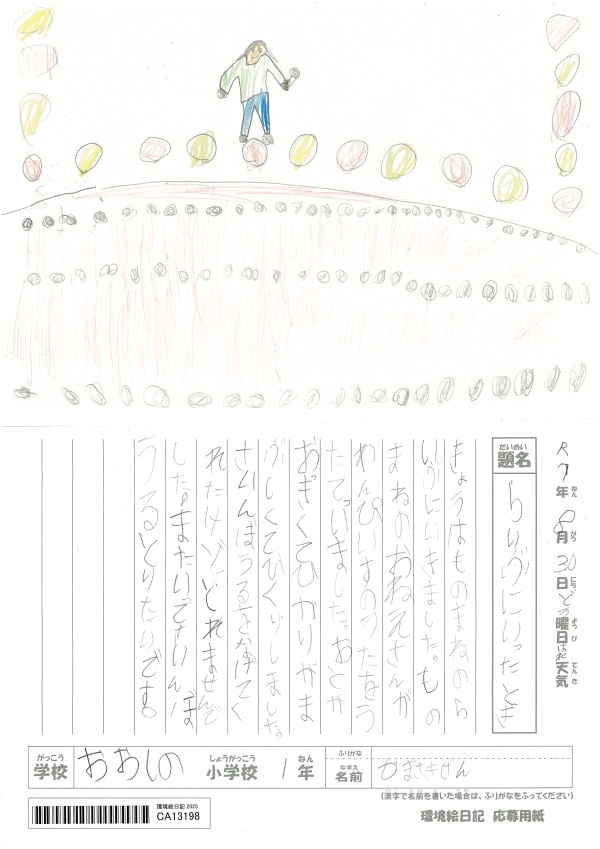 R7年ねん 8月がつ 30日にち どう曜日ようび はれ 天気てんき
題名だいめい
らいぶにいったとき
きょうはものまねのら
いぶにいきました。もの
まねのおねえさんが
わんぴいすのうたをう
たていました。おとが
おぎくてひかりがま
ぶしくてびくりしました。
さいんぼうるをなげてく
れたけどどれませんで
した。またいてさいんぼ
うるとりたいです。
がっこう
学校
おおしの
しょうがっこう
小学校
1
ねん
年
ふりがな
なまえ
名前
かまさきげん
(漢字で名前を書いた場合は、ふりがなをふってください)
環境絵日記 2025
CA13198
環境絵日記 応募用紙